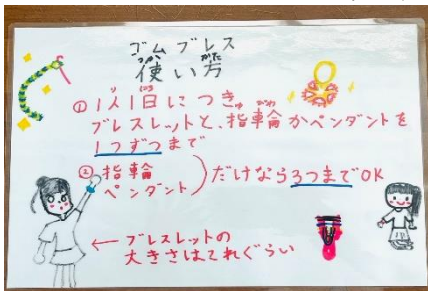 ゴムブレス
つか かた
使い方
り にち
①1人1日につき
ブレスレットと、指輪かペンダントを
1つずつまで
②指輪
ペンダント
だけなら3つまでOK
← ブレスレットの
大きさはこれぐらい